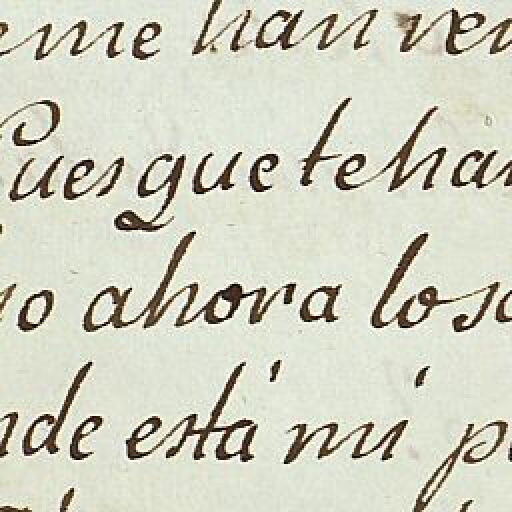 eme han ven
Pues que te han
no ahora lo sa
nde está mi p